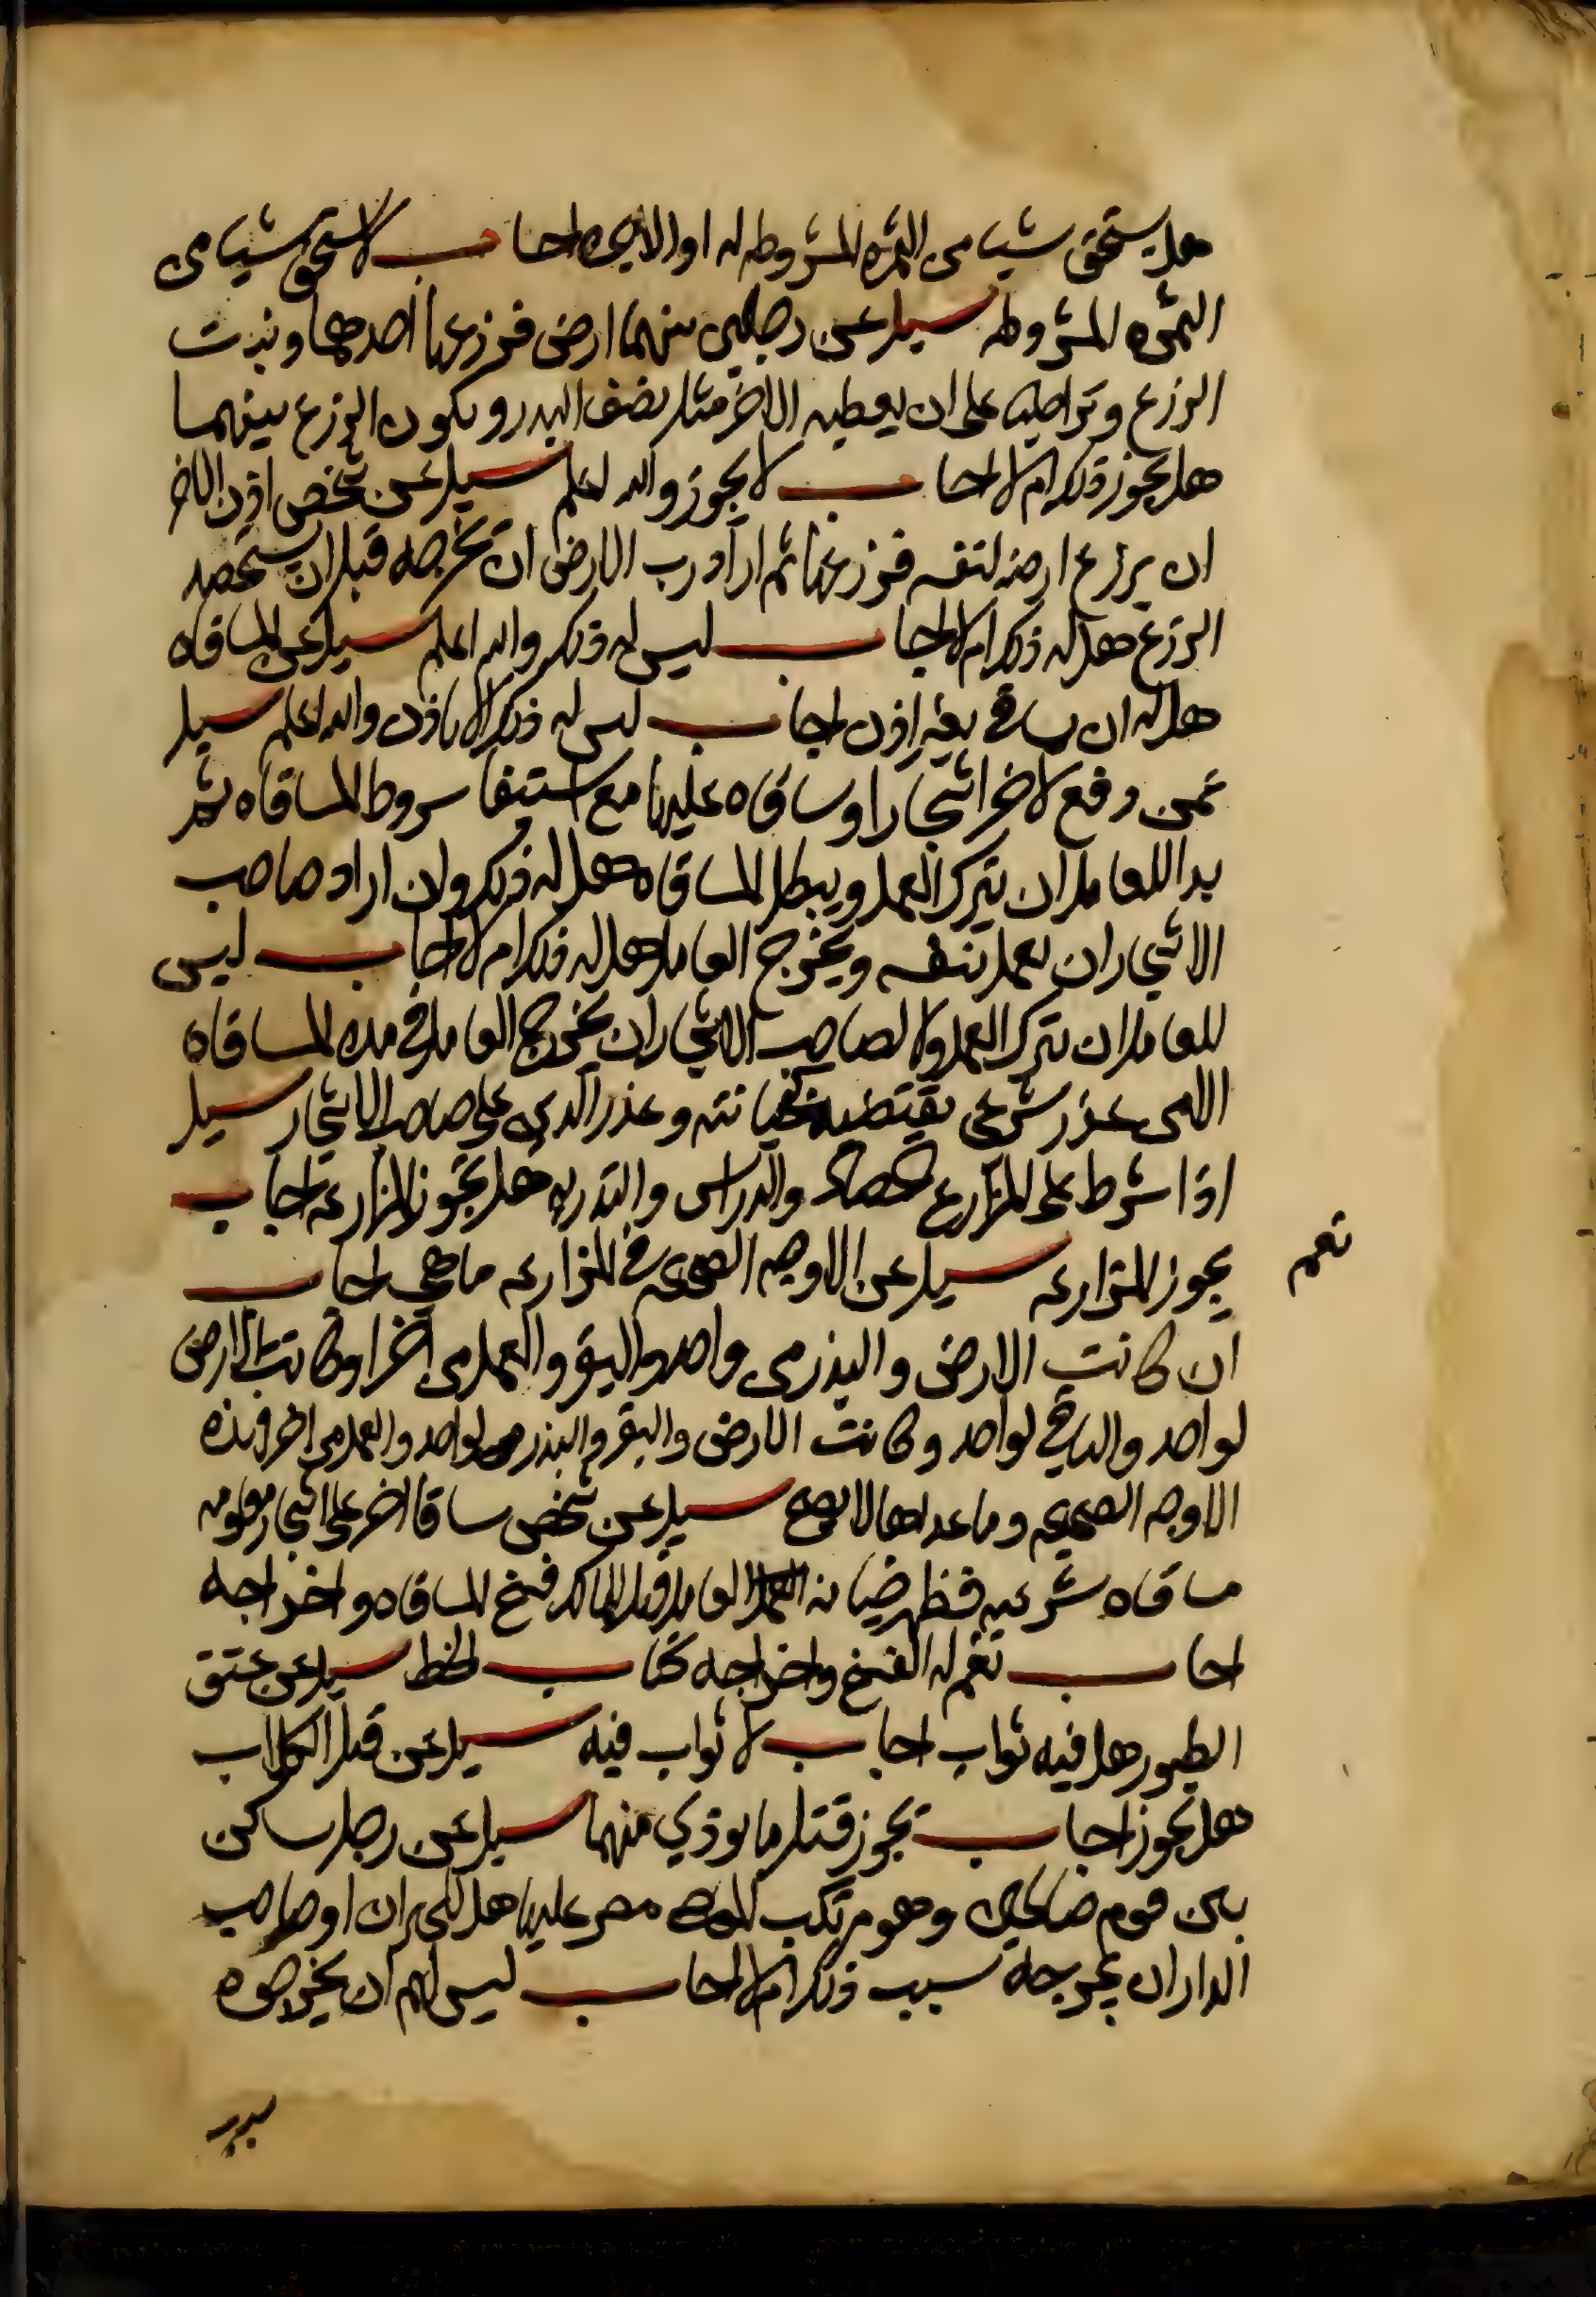 هل يستحق شيا من الثمرة المشروطه له او لا اجاب لا يستحق شيا من
الثمره المشروطه سيل عن رجلين بينهما ارض فزرعها احدهما ونبت
الزرع وتراضيا على ان يعطيه الاخر مثل نصف البدر ويكون الزرع بينهما
هل يجوز ذلك ام لا اجاب لا يجوز والله اعلم سيل عن شخص اذن لاخر
ان يزرع ارضه لنفسه فزرعها ثم اراد رب الارض ان يخرجه قبل ان يستحصد
الزرع هل له ذلك ام لا اجاب ليس له ذلك والله اعلم سيل عن المساقاه
هل له ان يساقي بغير اذن اجاب ليس له ذلك الا باذن والله اعلم سيل
عمن دفع لاخر اشجارا وساقاه عليها مع استيفا شروط المساقاه ثم
بدا للعامل ان يترك العمل ويبطل المساقاه هل له ذلك ولن اراد صاحب
الاشجار ان يعمل بنفسه ويخرج العامل هل له ذلك ام لا اجاب ليس
للعامل ان يترك العمل ولا لصاحب الاشجار ان يخرج العامل في مده المساقاه
الا من عذر شرعي يقتضيه كخيانته وعذر الدين على صاحب الاشجار سيل
اذا شرط على المزارع الحصاد والدراس والتدريه هل يجوز المزارعه اجاب
نعم
يجوز المزارعه سيل عن الاوجه الصحيحه في المزارعه ما هي اجاب
ان كانت الارض والبذر من واحد والبقر والعمل من اخر او كانت الارض
لواحد والباقي لواحد وكانت الارض والبقر والبذر من لواحد والعمل من اخر فهذه
الاوجه الصحيحه وما عداها لا يصح سيل عن شخص ساقا اخر على اشجار معلومه
مساقاه شرعيه فظهر خيانه العامل هل للمالك فسخ المساقاه واخراجه
اجاب نعم له الفسخ واخراجه كتاب الحظر سيل عن عتق
الطيور هل فيه ثواب اجاب لا ثواب فيه سيل عن قتل الكلاب
هل يجوز اجاب يجوز قتل ما يوذي منها سيل عن رجل ساكن
بين قوم صالحين وهو مرتكب للمعاصي مصر عليها هل للجيران او صاحب
الدار ان يخرجه بسبب ذلك ام لا اجاب ليس لهم ان يخرجوه